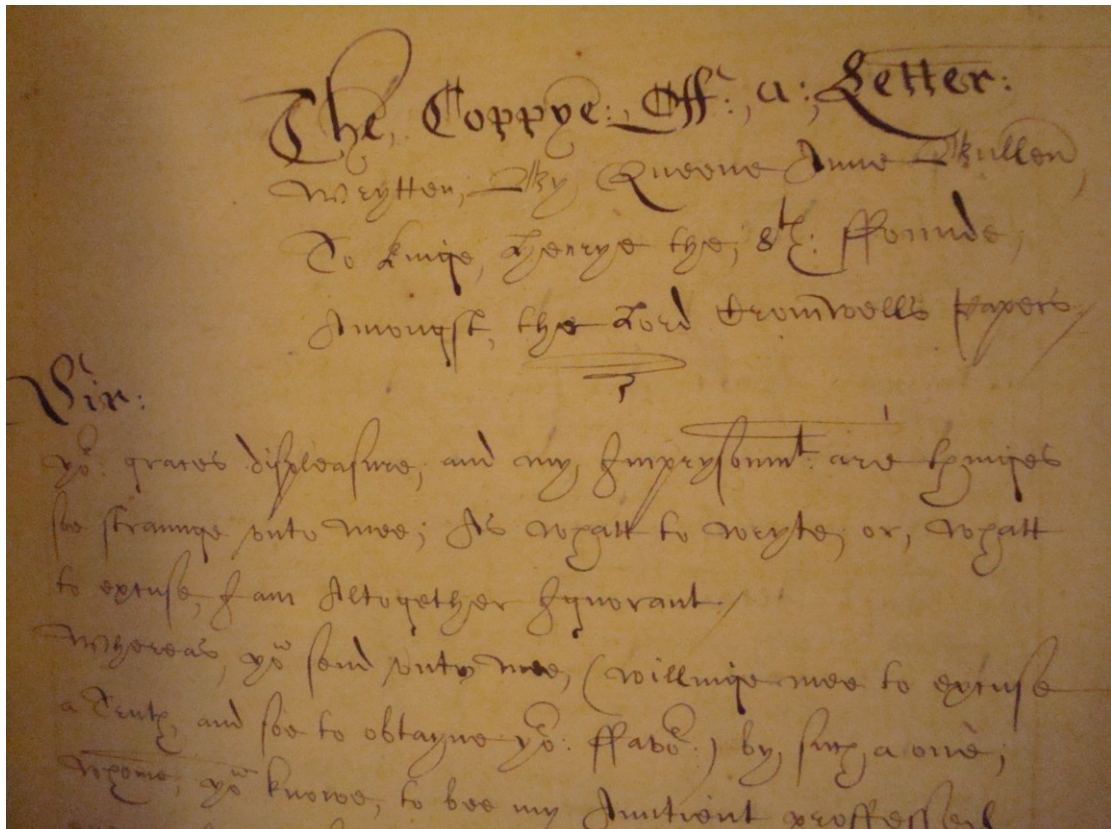 The, Coppye:, Off:, a:, Letter:
Wrytten, By, Queene Anne Bullen,
To kinge, Henrye the, 8th: ffounde,
Amongst, the Lord Cromwells Papers/
Sir:
yor: graces displeasure, and my, Imprysonmt: are thinges
soe straunge vnto mee; As whatt to wryte, or, whatt
to excuse, I am Altogether Ignorant./
Whereas, you send vnto mee, (willinge mee to excuse
a Truth, and soe to obtayne yor: ffavor:) by, such a one,
whome, you knowe, to bee my Auntient proffessed